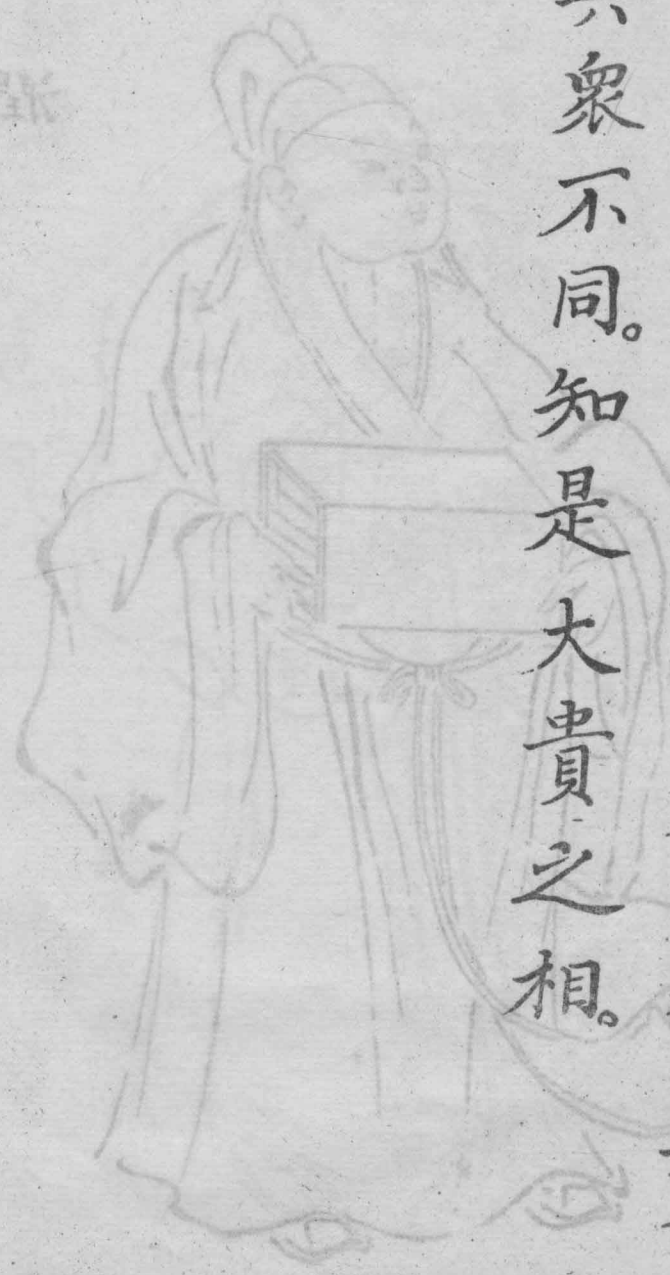 衆不同。知是大貴之相。